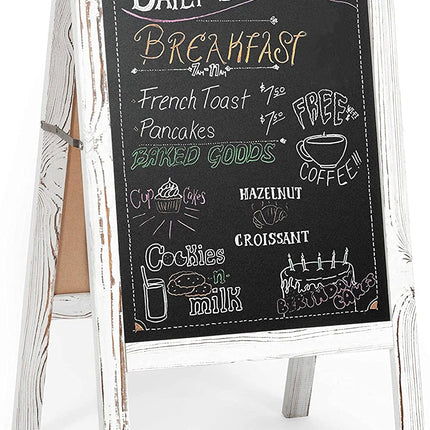 DAILY
BREAKFAST
7AM-11AM
French Toast $7.50
Pancakes $7.50
FREE
COFFEE!!!
BAKED GOODS
Cup Cakes
HAZELNUT
CROISSANT
Cookies
-n-
milk
BIRTHDAY
CAKES